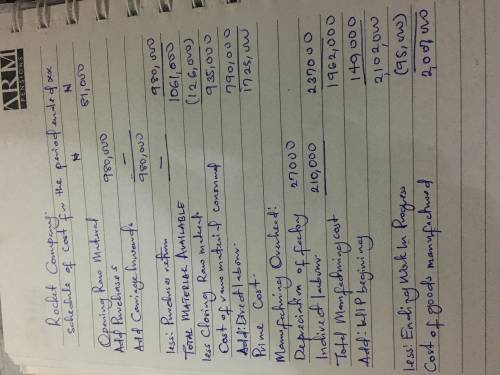 ARM
PENSIONS
Rocket Company
Schedule of Cost for the period ended xxx
₦ ₦
Opening Raw Material 81,000
Add Purchases 980,000
Add Carriage Inwards —
980,000
less: Purchases return — 980,000
TOTAL MATERIAL AVAILABLE 1061,000
less Closing Raw material (126,000)
Cost of raw material consumed 935,000
Add: Direct labour 790,000
Prime Cost. 1725,000
Manufacturing Overhead:
Depreciation of factory 27000
Indirect labour 210,000 237000
Total Manufacturing cost 1962,000
Add: WIP beginning 140,000
2,102,000
less: Ending Work in Progress (95,000)
Cost of goods manufactured 2,007,000